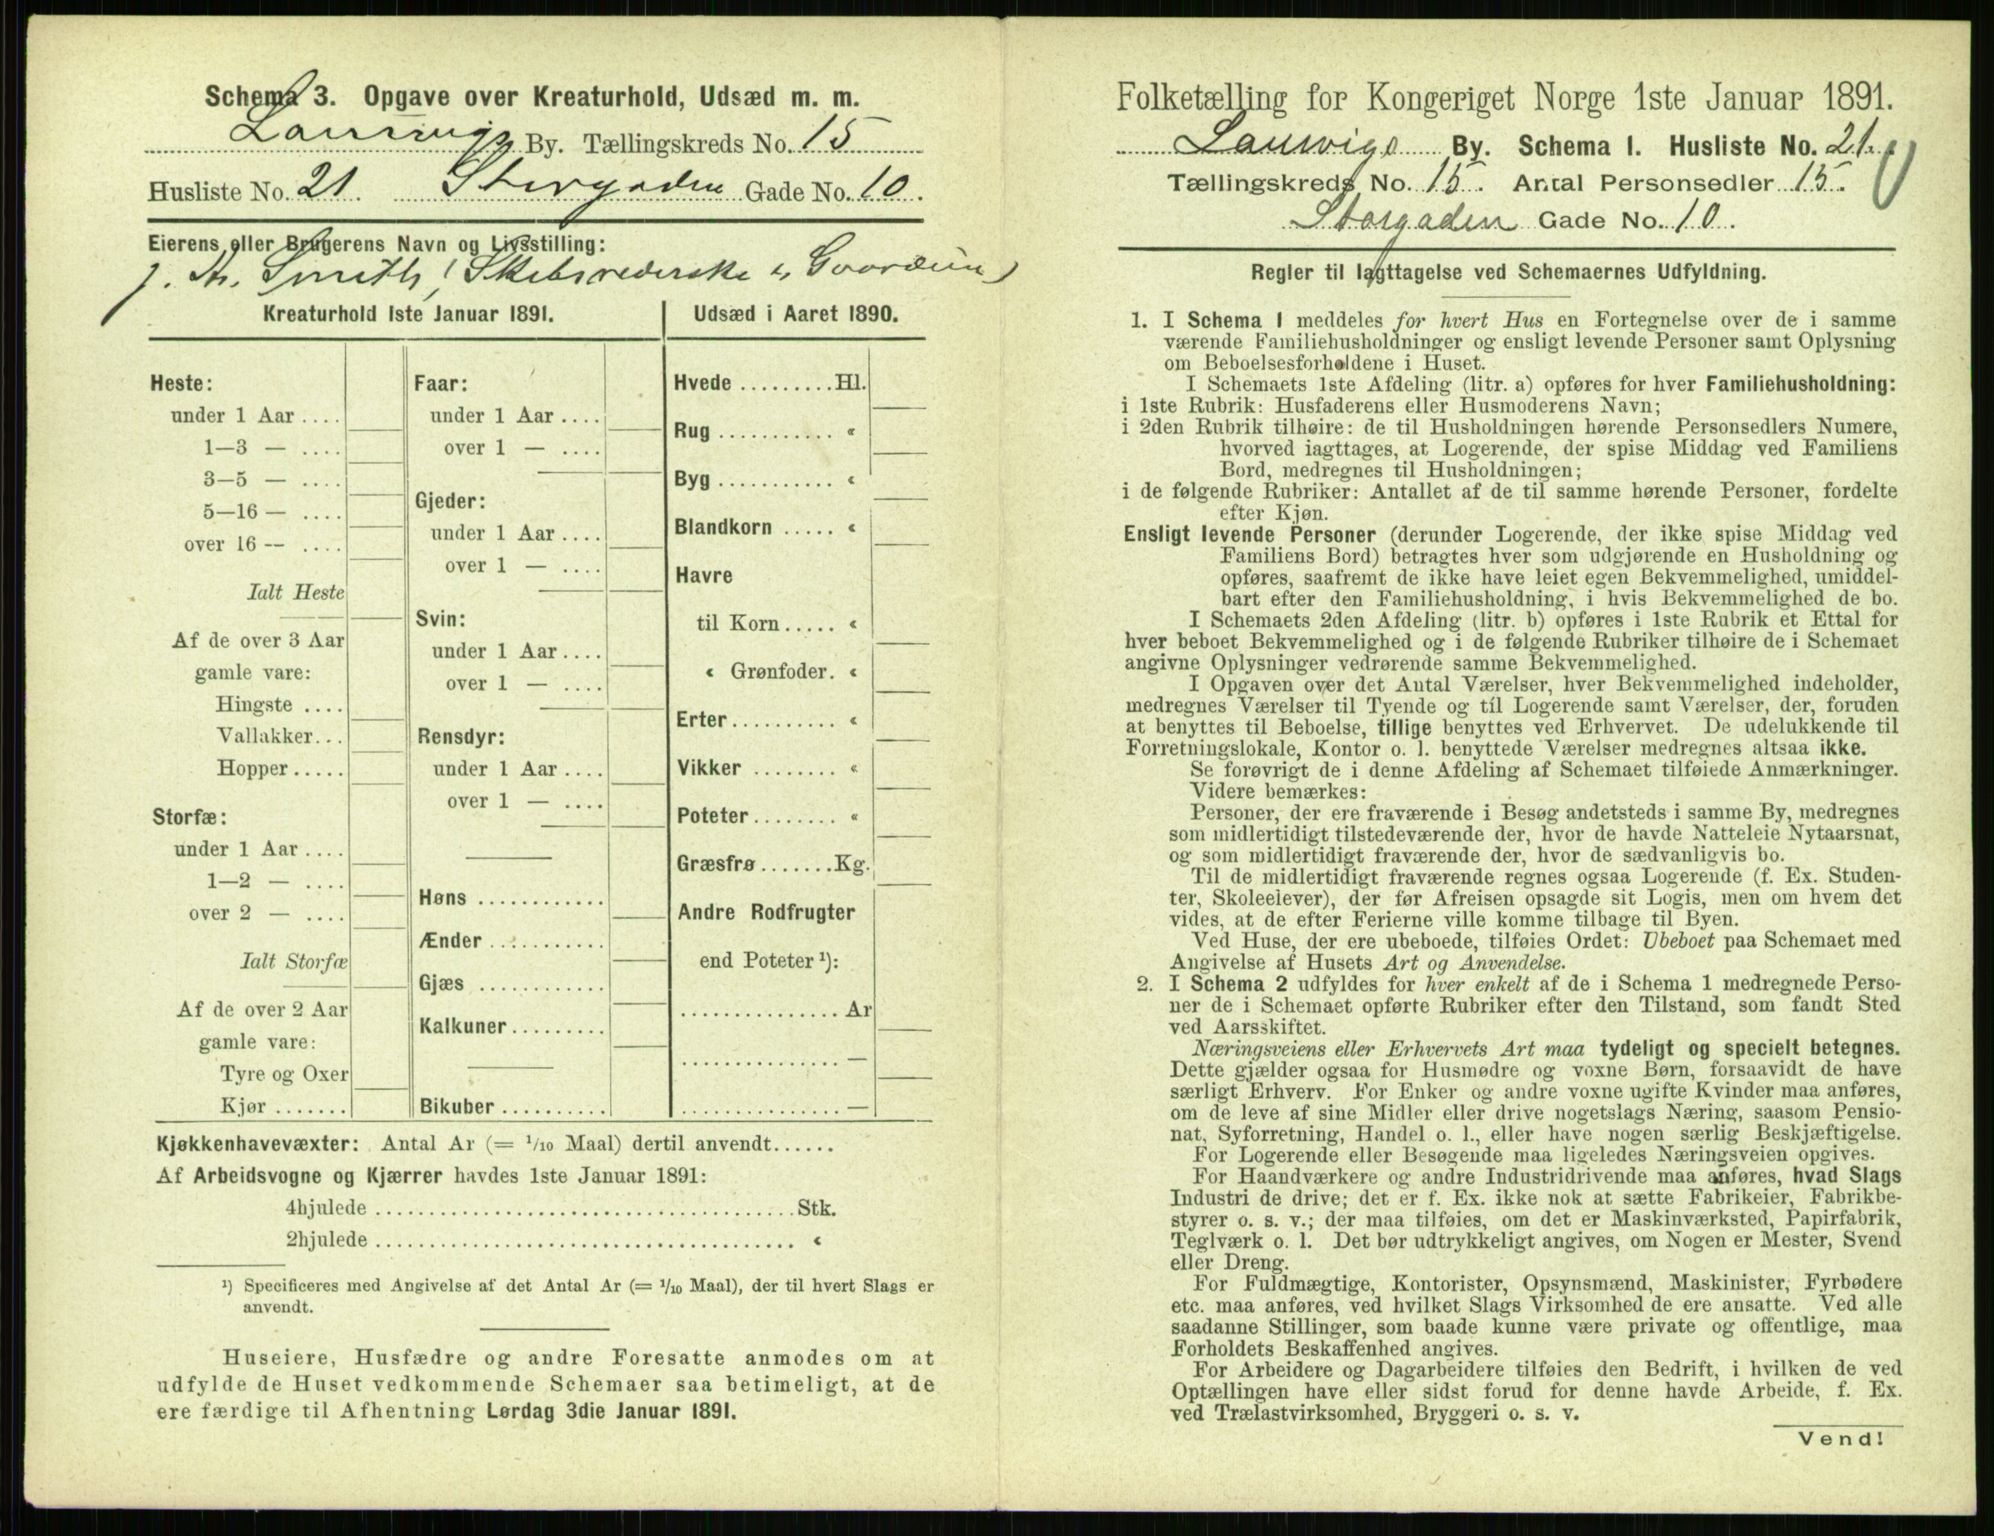 Schema 3. Opgave over Kreaturhold, Udsæd m. m.
Laurvigs By. Tællingskreds No. 15
Husliste No. 21. Storgaden Gade No. 10.
Eierens eller Brugerens Navn og Livsstilling:
J. Chr. Smith, Skibsrederske
Kreaturhold 1ste Januar 1891.
Heste:
under 1 Aar ....
1—3 — ....
3—5 — ....
5—16 — ....
over 16 — ....
Ialt Heste
Af de over 3 Aar
gamle vare:
Hingste ....
Vallakker...
Hopper.....
Storfæ:
under 1 Aar ....
1—2 — ....
over 2 — ....
Ialt Storfæ
Af de over 2 Aar
gamle vare:
Tyre og Oxer
Kjør .......
Faar:
under 1 Aar ....
over 1 — ....
Gjeder:
under 1 Aar ....
over 1 — ....
Svin:
under 1 Aar ....
over 1 — ....
Rensdyr:
under 1 Aar ....
over 1 — ....
Høns ............
Ænder ...........
Gjæs ............
Kalkuner.........
Bikuber ..........
Udsæd i Aaret 1890.
Hvede .........Hl.
Rug ........... «
Byg ........... «
Blandkorn ..... «
Havre
til Korn..... «
« Grønfoder. «
Erter.......... «
Vikker ........ «
Poteter........ «
Græsfrø.......Kg.
Andre Rodfrugter
end Poteter ¹):
............... Ar
............... —
............... —
Kjøkkenhavevæxter: Antal Ar (= 1/10 Maal) dertil anvendt......
Af Arbeidsvogne og Kjærrer havdes 1ste Januar 1891:
4hjulede ........................................Stk.
2hjulede ........................................ «
¹) Specificeres med Angivelse af det Antal Ar (= 1/10 Maal), der til hvert Slags er
anvendt.
Huseiere, Husfædre og andre Foresatte anmodes om at
udfylde de Huset vedkommende Schemaer saa betimeligt, at de
ere færdige til Afhentning Lørdag 3die Januar 1891.
Folketælling for Kongeriget Norge 1ste Januar 1891.
Laurvigs By. Schema 1. Husliste No. 21.
Tællingskreds No. 15. Antal Personsedler 15.
Storgaden Gade No. 10.
Regler til Iagttagelse ved Schemaernes Udfyldning.
1. I Schema 1 meddeles for hvert Hus en Fortegnelse over de i samme
værende Familiehusholdninger og ensligt levende Personer samt Oplysning
om Beboelsesforholdene i Huset.
I Schemaets 1ste Afdeling (litr. a) opføres for hver Familiehusholdning:
i 1ste Rubrik: Husfaderens eller Husmoderens Navn;
i 2den Rubrik tilhøire: de til Husholdningen hørende Personsedlers Numere,
hvorved iagttages, at Logerende, der spise Middag ved Familiens
Bord, medregnes til Husholdningen;
i de følgende Rubriker: Antallet af de til samme hørende Personer, fordelte
efter Kjøn.
Ensligt levende Personer (derunder Logerende, der ikke spise Middag ved
Familiens Bord) betragtes hver som udgjørende en Husholdning og
opføres, saafremt de ikke have leiet egen Bekvemmelighed, umiddel-
bart efter den Familiehusholdning, i hvis Bekvemmelighed de bo.
I Schemaets 2den Afdeling (litr. b) opføres i 1ste Rubrik et Ettal for
hver beboet Bekvemmelighed og i de følgende Rubriker tilhøire de i Schemaet
angivne Oplysninger vedrørende samme Bekvemmelighed.
I Opgaven over det Antal Værelser, hver Bekvemmelighed indeholder,
medregnes Værelser til Tyende og til Logerende samt Værelser, der, foruden
at benyttes til Beboelse, tillige benyttes ved Erhvervet. De udelukkende til
Forretningslokale, Kontor o. l. benyttede Værelser medregnes altsaa ikke.
Se forøvrigt de i denne Afdeling af Schemaet tilføiede Anmærkninger.
Videre bemærkes:
Personer, der ere fraværende i Besøg andetsteds i samme By, medregnes
som midlertidigt tilstedeværende der, hvor de havde Natteleie Nytaarsnat,
og som midlertidigt fraværende der, hvor de sædvanligvis bo.
Til de midlertidigt fraværende regnes ogsaa Logerende (f. Ex. Studen-
ter, Skoleelever), der før Afreisen opsagde sit Logis, men om hvem det
vides, at de efter Ferierne ville komme tilbage til Byen.
Ved Huse, der ere ubeboede, tilføies Ordet: Ubeboet paa Schemaet med
Angivelse af Husets Art og Anvendelse.
2. I Schema 2 udfyldes for hver enkelt af de i Schema 1 medregnede Perso-
ner de i Schemaet opførte Rubriker efter den Tilstand, som fandt Sted
ved Aarsskiftet.
Næringsveiens eller Erhvervets Art maa tydeligt og specielt betegnes.
Dette gjælder ogsaa for Husmødre og voxne Børn, forsaavidt de have
særligt Erhverv. For Enker og andre voxne ugifte Kvinder maa anføres,
om de leve af sine Midler eller drive nogetslags Næring, saasom Pensio-
nat, Syforretning, Handel o. l., eller have nogen særlig Beskjæftigelse.
For Logerende eller Besøgende maa ligeledes Næringsveien opgives.
For Haandværkere og andre Industridrivende maa anføres, hvad Slags
Industri de drive; det er f. Ex. ikke nok at sætte Fabrikeier, Fabrikbe-
styrer o. s. v.; der maa tilføies, om det er Maskinværksted, Papirfabrik,
Teglværk o. l. Det bør udtrykkeligt angives, om Nogen er Mester, Svend
eller Dreng.
For Fuldmægtige, Kontorister, Opsynsmænd, Maskinister, Fyrbødere
etc. maa anføres, ved hvilket Slags Virksomhed de ere ansatte. Ved alle
saadanne Stillinger, som baade kunne være private og offentlige, maa
Forholdets Beskaffenhed angives.
For Arbeidere og Dagarbeidere tilføies den Bedrift, i hvilken de ved
Optællingen have eller sidst forud for denne havde Arbeide, f. Ex.
ved Trælastvirksomhed, Bryggeri o. s. v.
Vend!